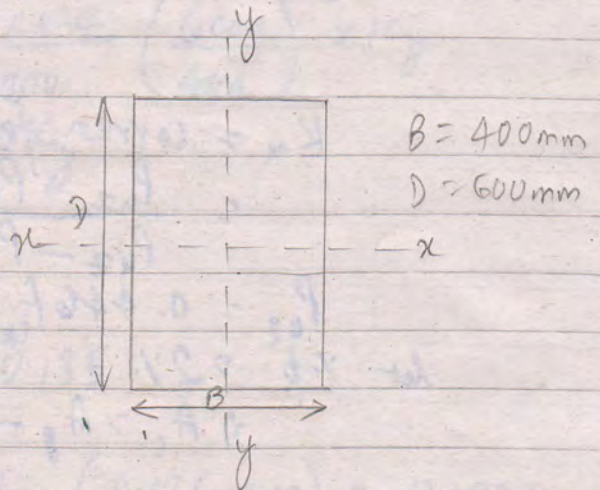 y
B = 400mm
D = 600mm
D
x
x
B
y